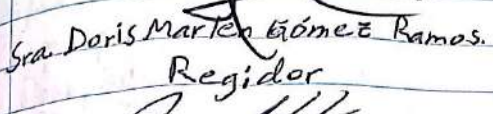 Sra. Doris Marlen Gómez Ramos.
Regidor